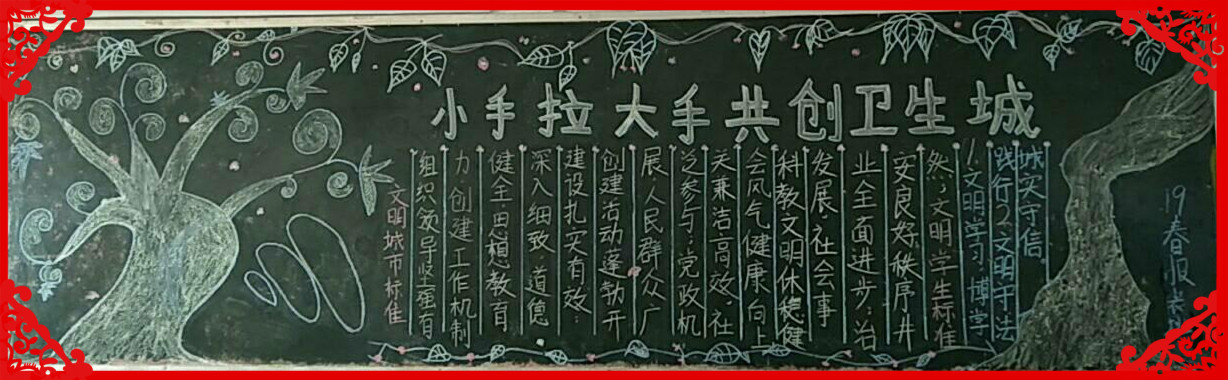 小手拉大手共创卫生城
文明城市标准
组织领导坚强有
力创建工作机制
健全思想教育
深入细致道德
建设扎实有效:
创建活动蓬勃开
展,人民群众广
泛参与;党政机
关兼洁高效,社
会风气健康向上
科教文明休稳健
发展,社会事
业全面进步;治
安良好秩序井
然,文明学生标准
1.文明学习博学
践行2.文明守法
城实守信。
19春服